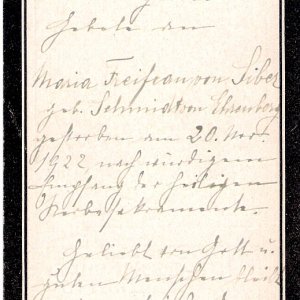 Gebete der
Maria Freifrau von Siber
geb. Schmidt von Ehrenberg
gestorben am 20. Nov.
1922 nach würdigem
Empfang der heiligen
Sterbesakramente.
Geliebt von Gott u.
guten Menschen bleibt